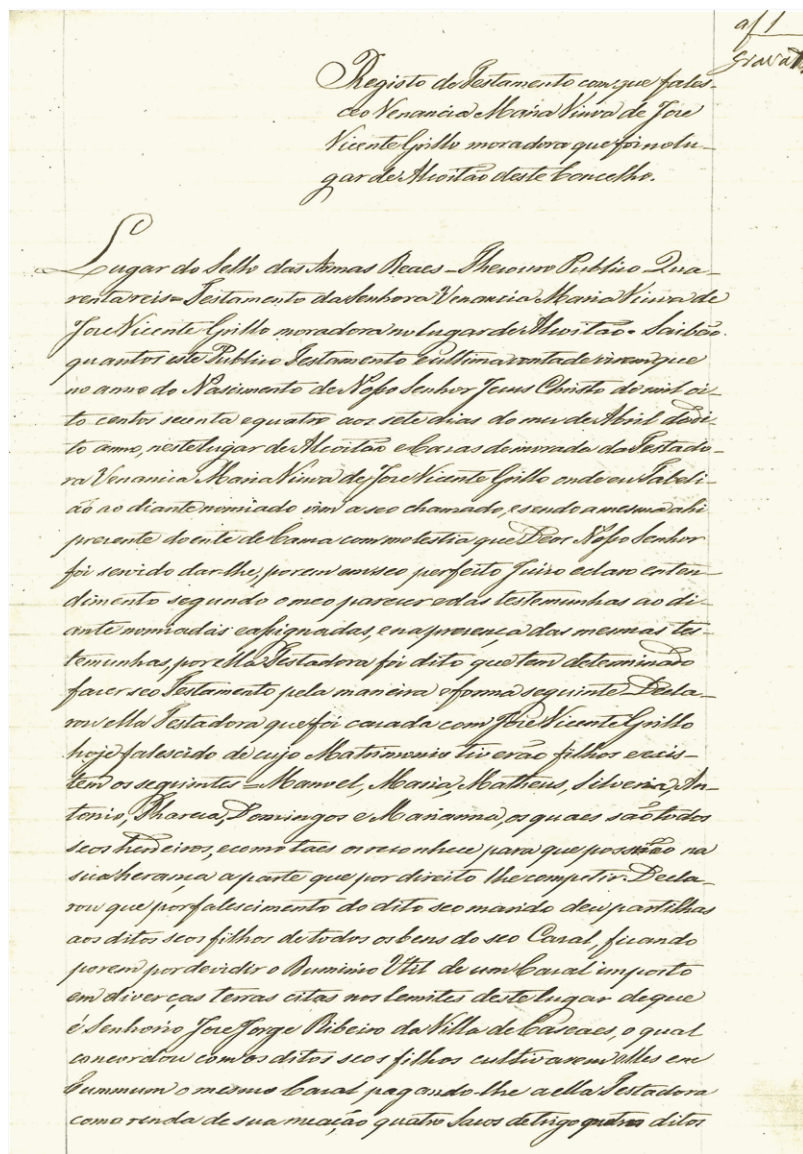 af 1
Registo do Testamento com que fales-
ceo Venancia Maria Viuva de Jose
Vicente Grillo moradora que foi no lu-
gar de Alcoitão deste Concelho.
Lugar do Sello das Armas Reaes = Thezouro Publico Qua-
renta reis = Testamento da Senhora Venancia Maria Viuva de
Jose Vicente Grillo moradora no lugar de Alcoitão. Saibão
quantos este Publico Testamento e ultima vontade virem que
no anno do Nascimento de Nosso Senhor Jesus Christo de mil oi-
to centos secenta e quatro aos sete dias do mez de Abril do di-
to anno, neste lugar de Alcoitão e Cazas de morada da Testado-
ra Venancia Maria Viuva de Jose Vicente Grillo onde eu Tabeli-
ão ao diante nomiado vim a seo chamado, e sendo a mesma ahi
prezente doente de Cama com molestia que Deos Nosso Senhor
foi servido dar-lhe, porem em seo perfeito Juizo e claro enten-
dimento segundo o meo parecer e das testemunhas ao di-
ante nomiadas e assignadas, e na prezença das mesmas tes-
temunhas, por ella Testadora foi dito que tem determinado
fazer seo Testamento pela maneira e forma seguinte = Decla-
rou ella Testadora que foi cazada com Jose Vicente Grillo
hoje falescido de cujo Matrimonio tiverão filhos e exis-
tem os seguintes = Manoel, Maria, Matheus, Silveria, An-
tonio, Tharcia, Domingos e Marianna, os quaes são todos
seos herdeiros, e como taes os reconhece para que possão na
sua herança a parte que por direito lhe competir = Decla-
rou que por falescimento do dito seo marido deu partilhas
aos ditos seos filhos de todos os bens do seo Cazal, ficando
porem por devidir o Duminio Util de um Cazal imposto
em diverças terras citas nos lemites deste lugar de que
é Senhorio Jose Jorge Ribeiro da Villa de Cascaes, o qual
concordou com os ditos seos filhos cultivarem elles em
Cummum o mesmo Cazal pagando-lhe a ella Testadora
como renda de sua meação quatro sacos de trigo quatro ditos